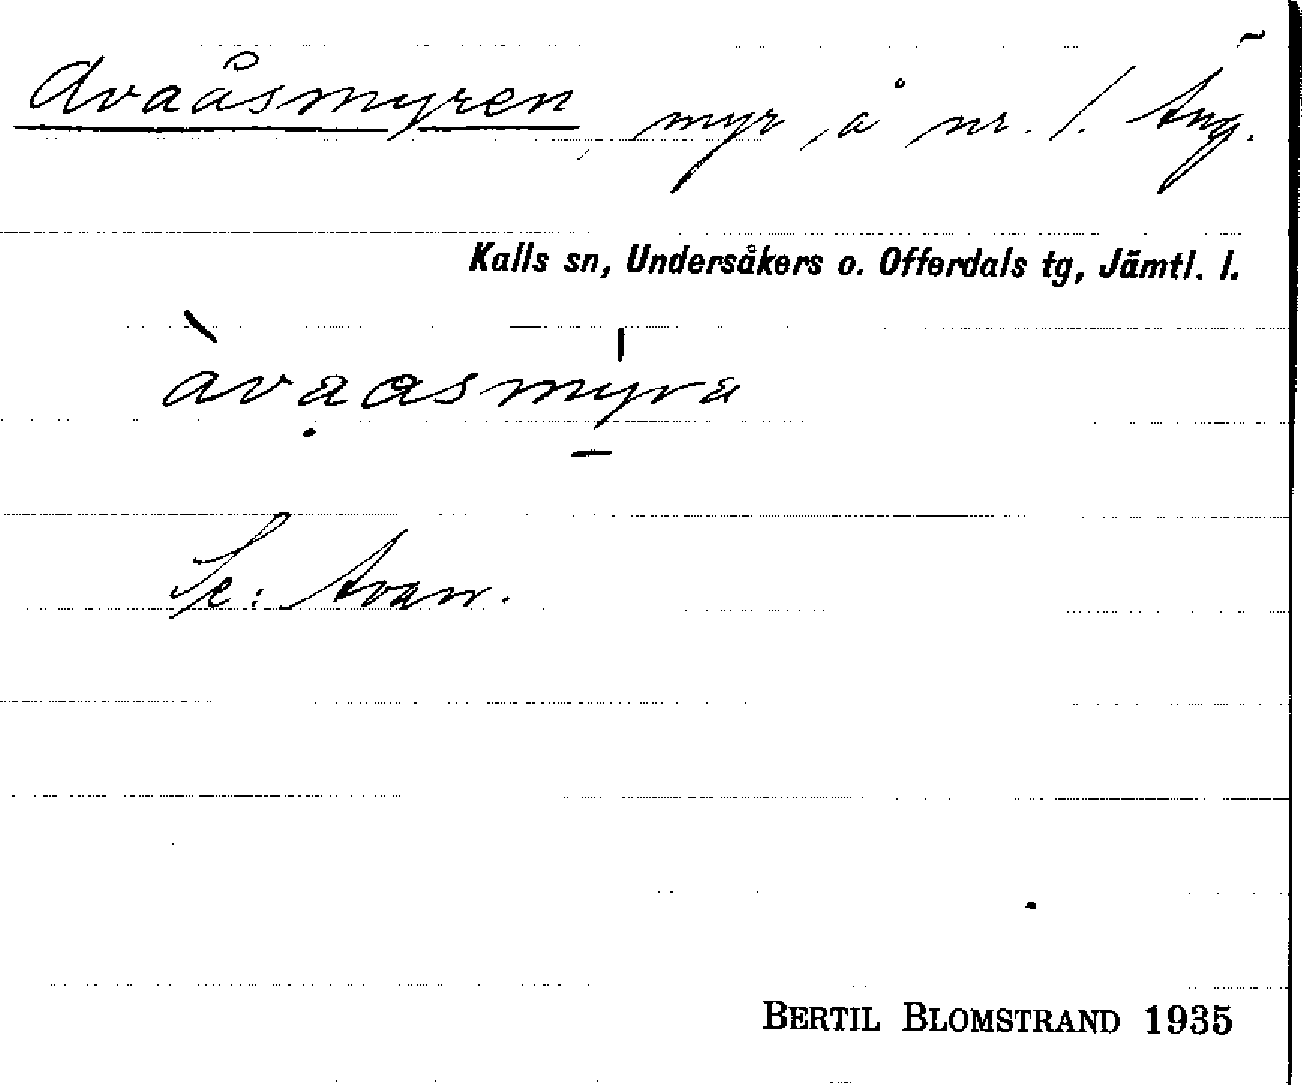 Avaåsmyren, myr, å nr. 1. Äng.
Kalls sn, Undersåkers o. Offerdals tg, Jämtl. l.
àvaasmyra
Se: Avan.
BERTIL BLOMSTRAND 1935